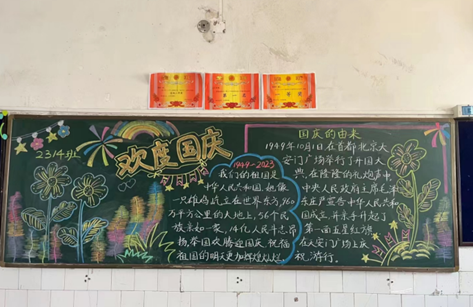 2314班
欢度国庆
1949-2023
我们的祖国是
中华人民共和国,她像
一只雄鸡屹立在世界东方,960
万平方公里的大地上,56个民
族亲如一家,14亿人民斗志昂
扬举国欢腾迎国庆,祝福
祖国的明天更加辉煌灿烂。
国庆的由来
1949年10月1日在首都北京天
安门广场举行了开国大
典,在隆隆的礼炮声中,
中央人民政府主席毛泽
东庄严宣告中华人民共和
国成立,并亲手升起了
第一面五星红旗
在天安门广场上庆
祝,游行。